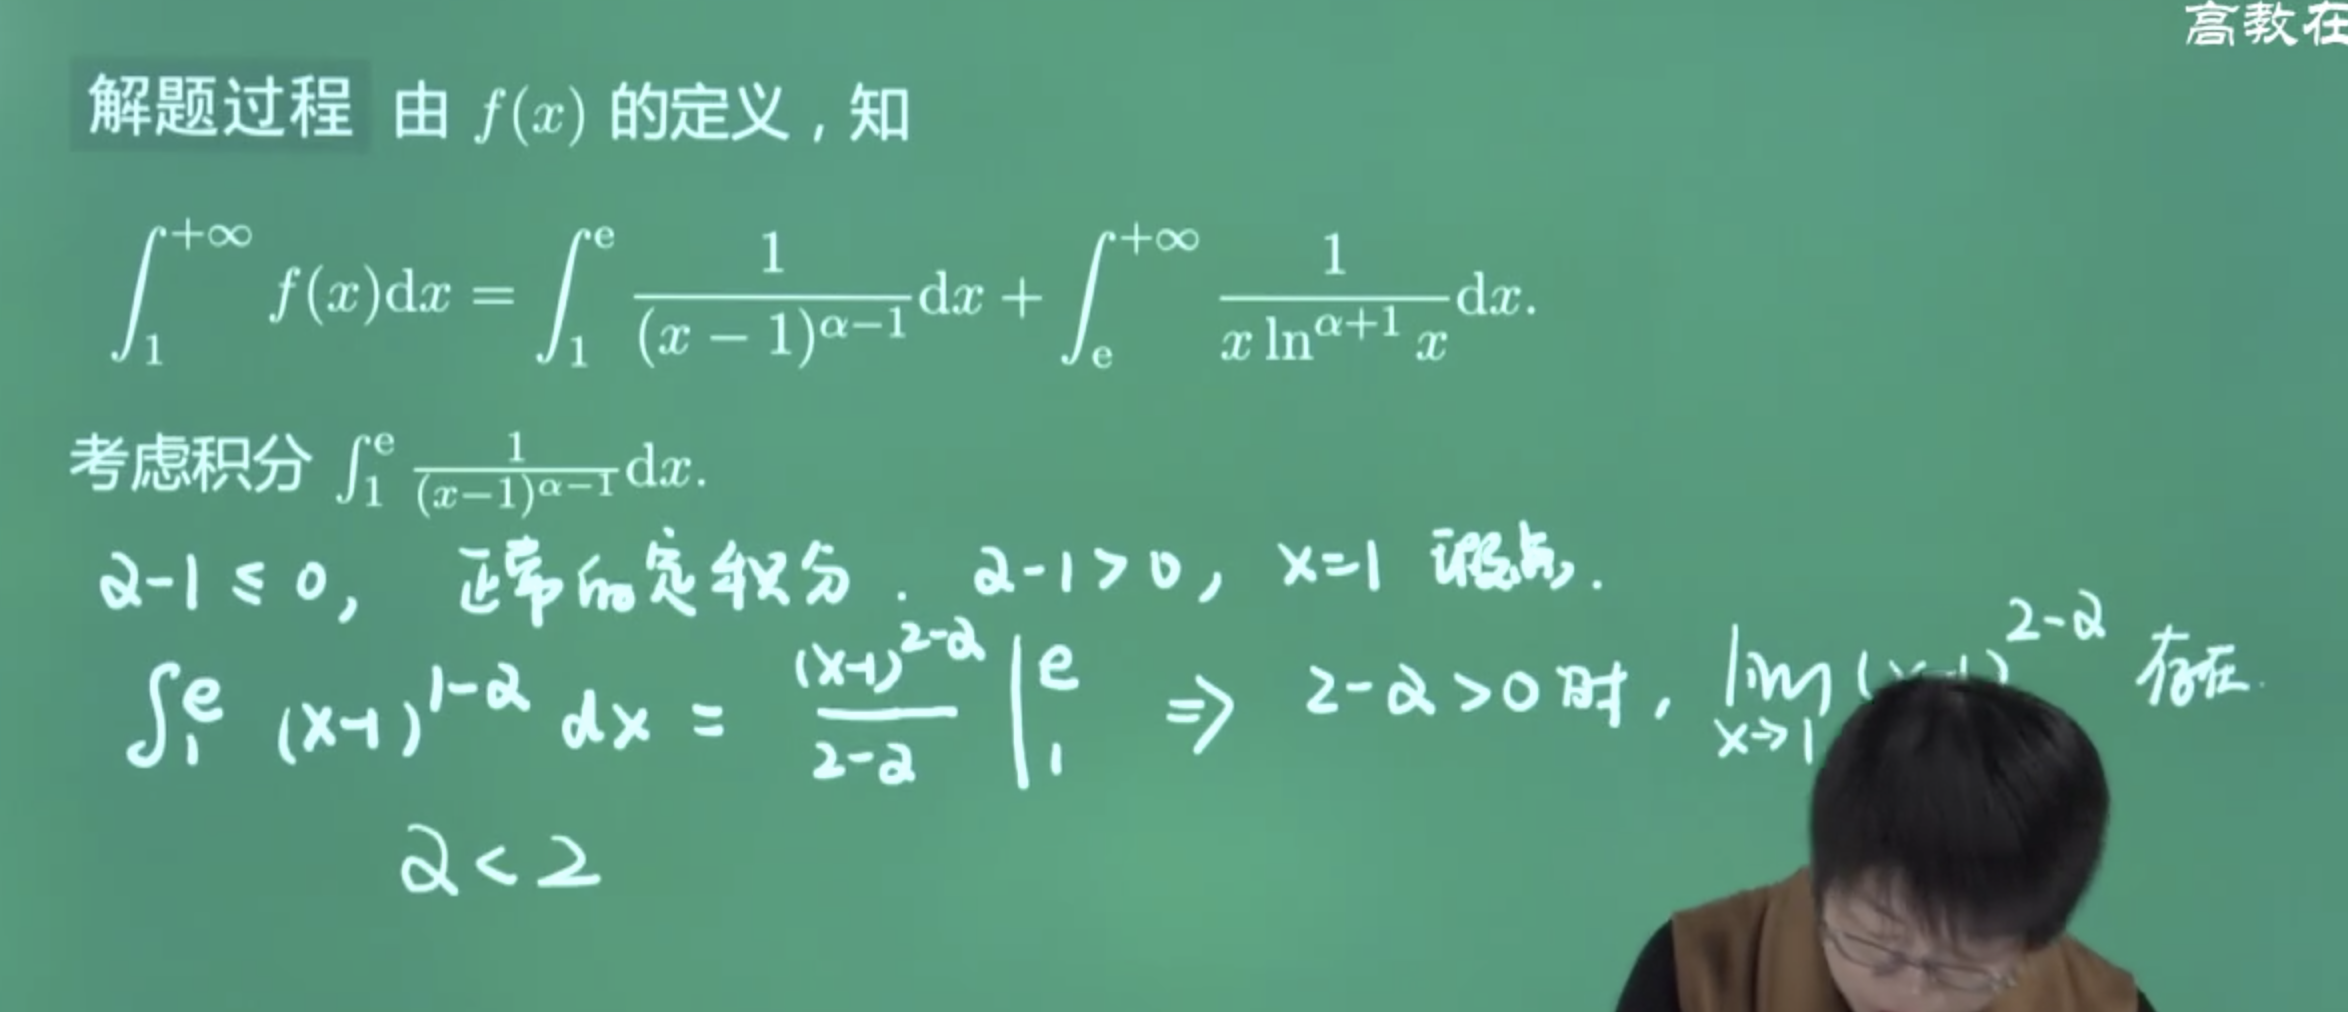 高教在
解题过程 由 f(x) 的定义，知
∫₁^{+∞} f(x)dx = ∫₁^e 1/(x − 1)^{α−1} dx + ∫_e^{+∞} 1/(x ln^{α+1} x) dx.
考虑积分 ∫₁^e 1/(x−1)^{α−1} dx.
α-1 ≤ 0， 正常的定积分. α-1 > 0， x=1 瑕点.
∫₁^e (x-1)^{1-α} dx = (x-1)^{2-α}/(2-α) |₁^e ⇒ 2-α>0 时， lim_{x→1} (x-1)^{2-α} 存在.
α < 2